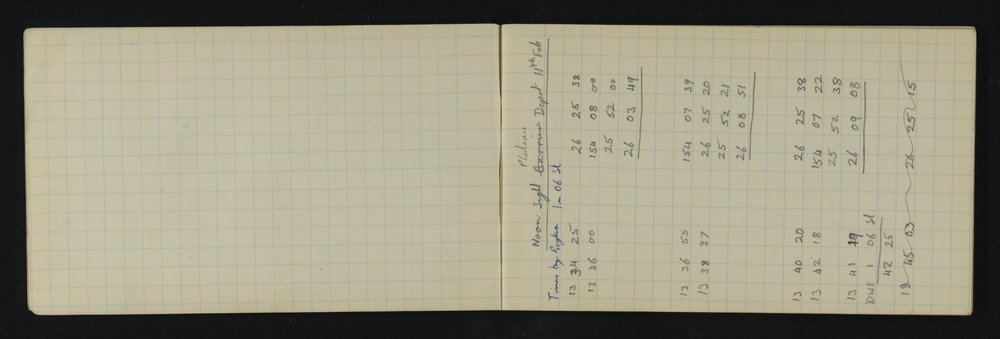 Plateau
Noon Sight Barrier Depot 11th Feb
Times by Rugby 1m 06 Sl
13 34 25 26 25 38
13 36 00 154 08 00
25 52 00
26 03 49
13 36 55 154 07 39
13 38 37 26 25 20
25 52 21
26 08 51
13 40 20 26 25 38
13 42 18 154 07 22
25 52 38
13 41 19 26 09 08
DWE 1 06 Sl
42 25
13 45 03 26 25 15